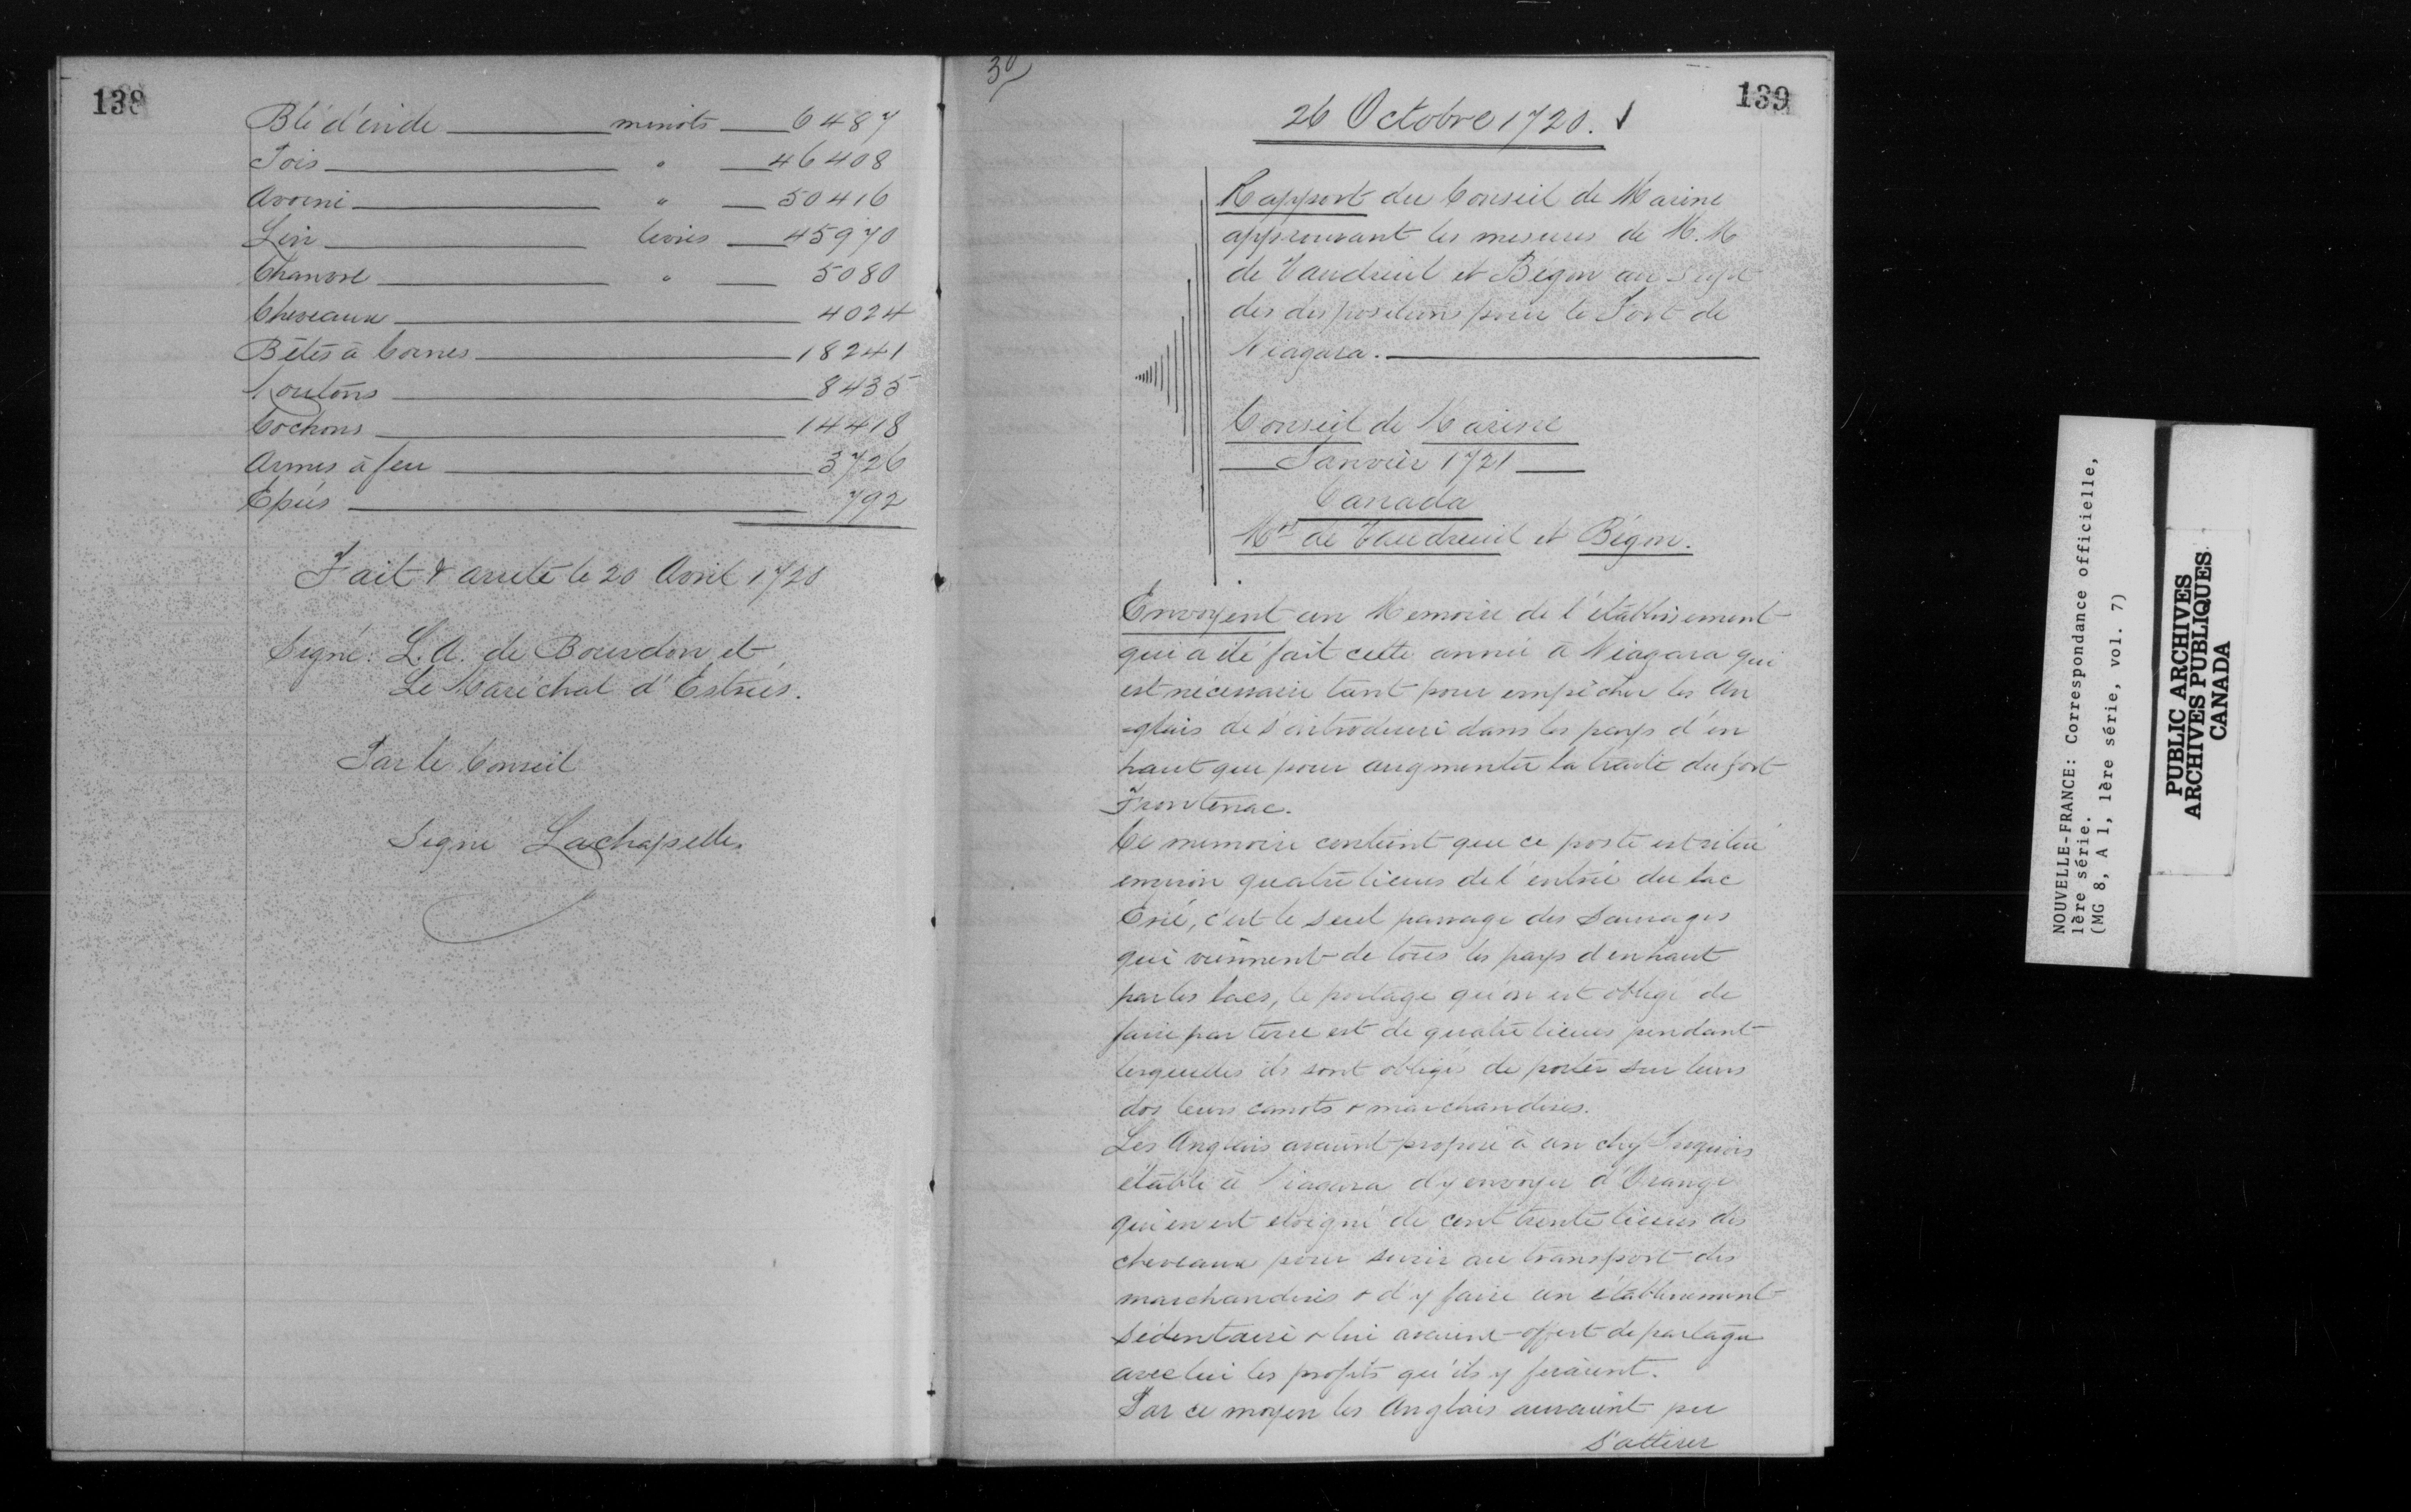 138
Blé d'inde minots 6487
Pois " 46408
Avoine " 50416
Lin livres 45970
Chanvre " 5080
Cheveaux 4024
Bêtes à Cornes 18241
Moutons 8435
Cochons 14418
Armes à feu 3726
Epées 792
Fait & arrêté le 20 Avril 1720
Signé: L. A. de Bourdon et
Le Maréchal d'Estrées.
Par le Conseil
Signé Lachapelle.
139
26 Octobre 1720.
Rapport du Conseil de Marine
approuvant les mesures de M. M
de Vaudreuil et Bégon au sujet
des dispositions pour le Fort de
Niagara.
Conseil de Marine
Janvier 1721
Canada
Mrs de Vaudreuil et Bégon.
Envoyent un Memoire de l'établissement
qui a été fait cette année à Niagara qui
est nécessaire tant pour empêcher les An
=glais de s'introduire dans les pays d'en
haut que pour augmenter la traite du fort
Frontenac.
Ce memoire contient que ce poste est situé
environ quatre lieues de l'entrée du lac
Erié, c'est le seul passage des Sauvages
qui viennent de tous les pays d'en haut
par les lacs, le portage qu'on est obligé de
faire par terre est de quatre lieues pendant
lesquelles ils sont obligés de porter sur leurs
dos leurs canots & marchandises.
Les Anglais avaient proposé à un chef Iroquois
établi à Niagara d'y envoyer d'Orange
qui en est éloigné de cent trente lieues des
cheveaux pour servir au transport des
marchandises & d'y faire un établissement
sédentaire & lui avaient offert de partager
avec lui les profits qu'ils y feraient.
Par ce moyen les Anglais auraient pu
s'attirer
NOUVELLE-FRANCE: Correspondance officielle,
1ère série.
(MG 8, A 1, 1ère série, vol. 7)
PUBLIC ARCHIVES
ARCHIVES PUBLIQUES
CANADA